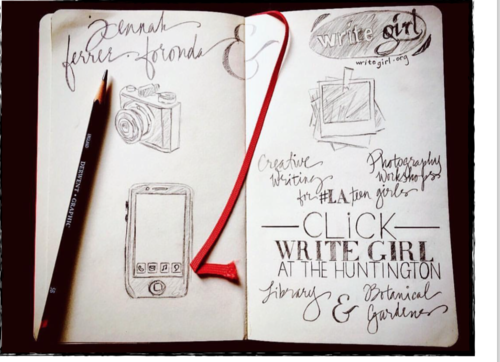 Jennah
ferrer-foronda
&
write girl
writegirl.org
Creative
Writing
Photography
Workshops
for #LA teen girls
CLiCK
WRITE GIRL
AT THE HUNTINGTON
Library
&
Botanical
Gardens
DERWENT • GRAPHIC